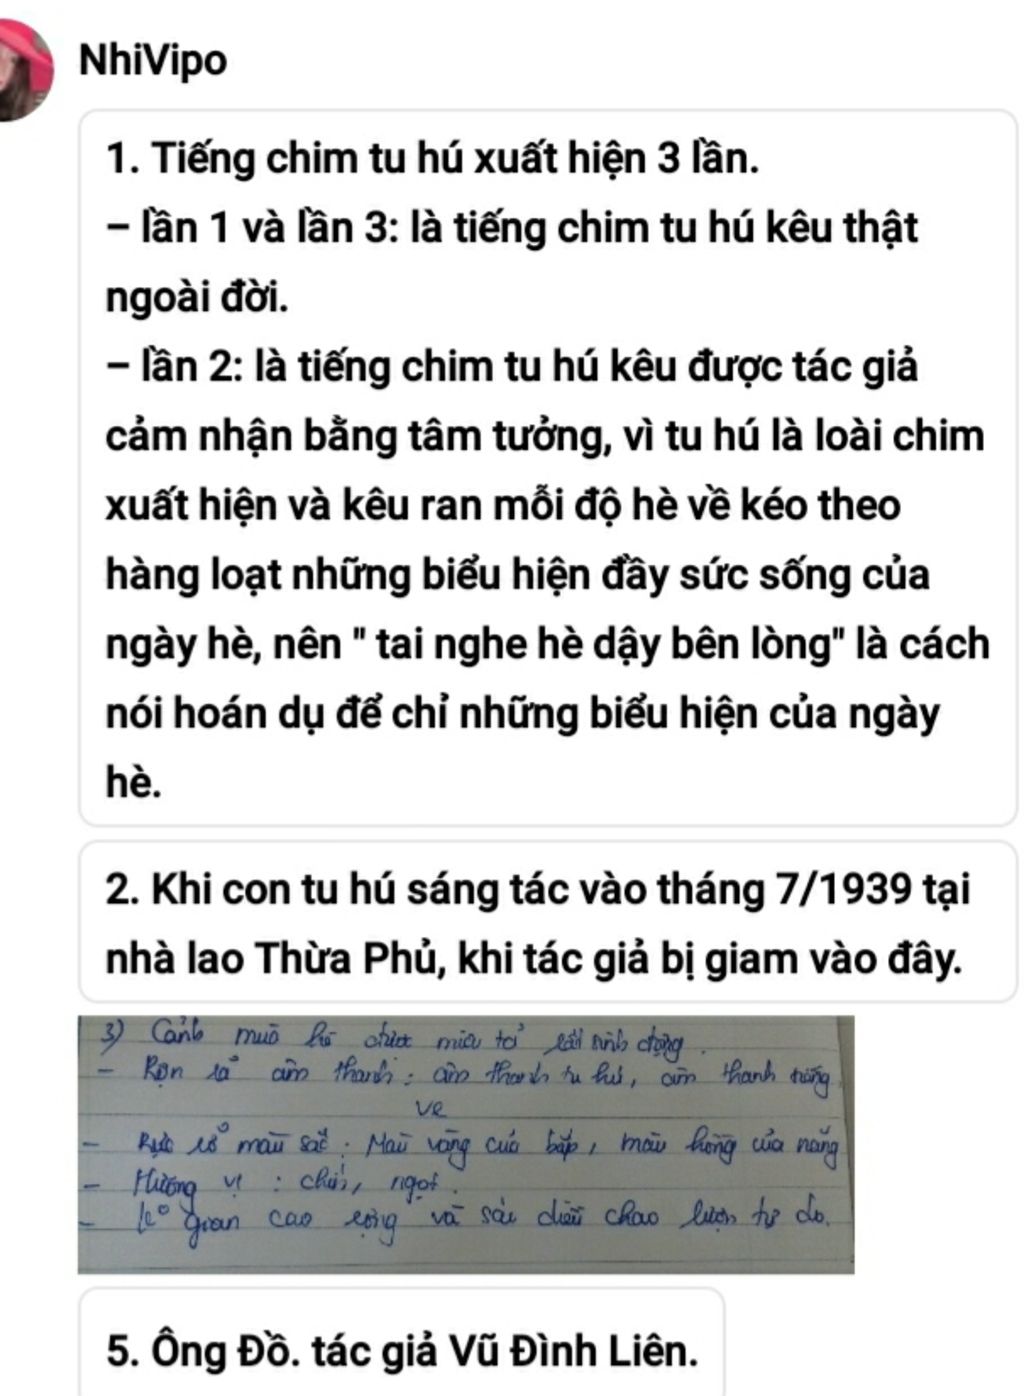 NhiVipo
1. Tiếng chim tu hú xuất hiện 3 lần.
– lần 1 và lần 3: là tiếng chim tu hú kêu thật
ngoài đời.
– lần 2: là tiếng chim tu hú kêu được tác giả
cảm nhận bằng tâm tưởng, vì tu hú là loài chim
xuất hiện và kêu ran mỗi độ hè về kéo theo
hàng loạt những biểu hiện đầy sức sống của
ngày hè, nên " tai nghe hè dậy bên lòng" là cách
nói hoán dụ để chỉ những biểu hiện của ngày
hè.
2. Khi con tu hú sáng tác vào tháng 7/1939 tại
nhà lao Thừa Phủ, khi tác giả bị giam vào đây.
3) Cảnh mùa hè được miêu tả rất sinh động.
– Rộn rã âm thanh: âm thanh tu hú, âm thanh tiếng
ve
– Rực rỡ màu sắc: Màu vàng của bắp, màu hồng của nắng
– Hương vị : chín, ngọt.
– ko gian cao rộng và sáo diều chao lượn tự do.
5. Ông Đồ. tác giả Vũ Đình Liên.